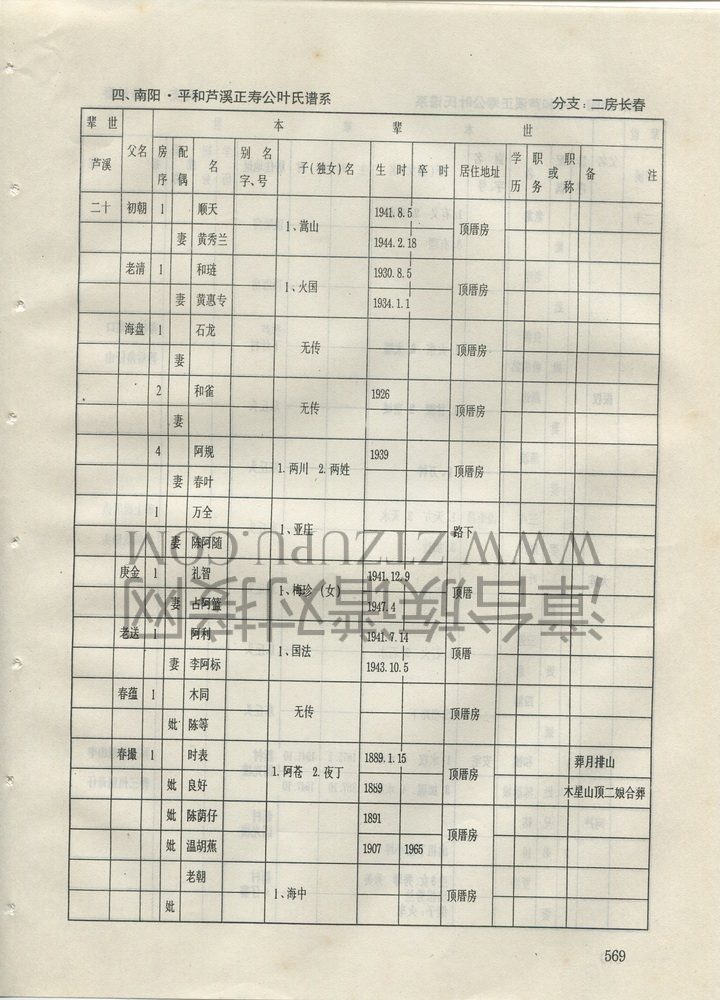 四、南阳·平和芦溪正寿公叶氏谱系 分支：二房长春
辈世 本辈世
芦溪 父名 房序 配偶 名 别名字、号 子(独女)名 生时 卒时 居住地址 学历 职务或职称 备注
二十 初朝 1 顺天 1、嵩山 1941.8.5 顶厝房
妻 黄秀兰 1944.2.18
老清 1 和琏 1、火国 1930.8.5 顶厝房
妻 黄惠专 1934.1.1
海盘 1 石龙 无传 顶厝房
妻
2 和雀 无传 1926 顶厝房
妻
4 阿规 1.两川 2.两姓 1939 顶厝房
妻 春叶
1 万全 1、亚庄 路下
妻 陈阿随
庚金 1 礼智 1、梅珍(女) 1941.12.9 顶厝
妻 占阿篮 1947.4
老送 1 阿利 1、国法 1941.7.14 顶厝
妻 李阿标 1943.10.5
春蕴 1 木同 无传 顶厝房
妣 陈等
春撮 1 时表 1.阿苍 2.夜丁 1889.1.15 顶厝房 葬月排山
妣 良好 1889 木星山顶二娘合葬
妣 陈荫仔 1891 顶厝房
妣 温胡蕉 1907 1965
老朝 1、海中 顶厝房
妣
569
WWW.ZTZUPU.COM
漳台族谱对接网